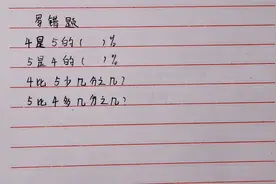 易错题
4是5的( )%
5是4的( )%
4比5少几分之几?
5比4多几分之几?